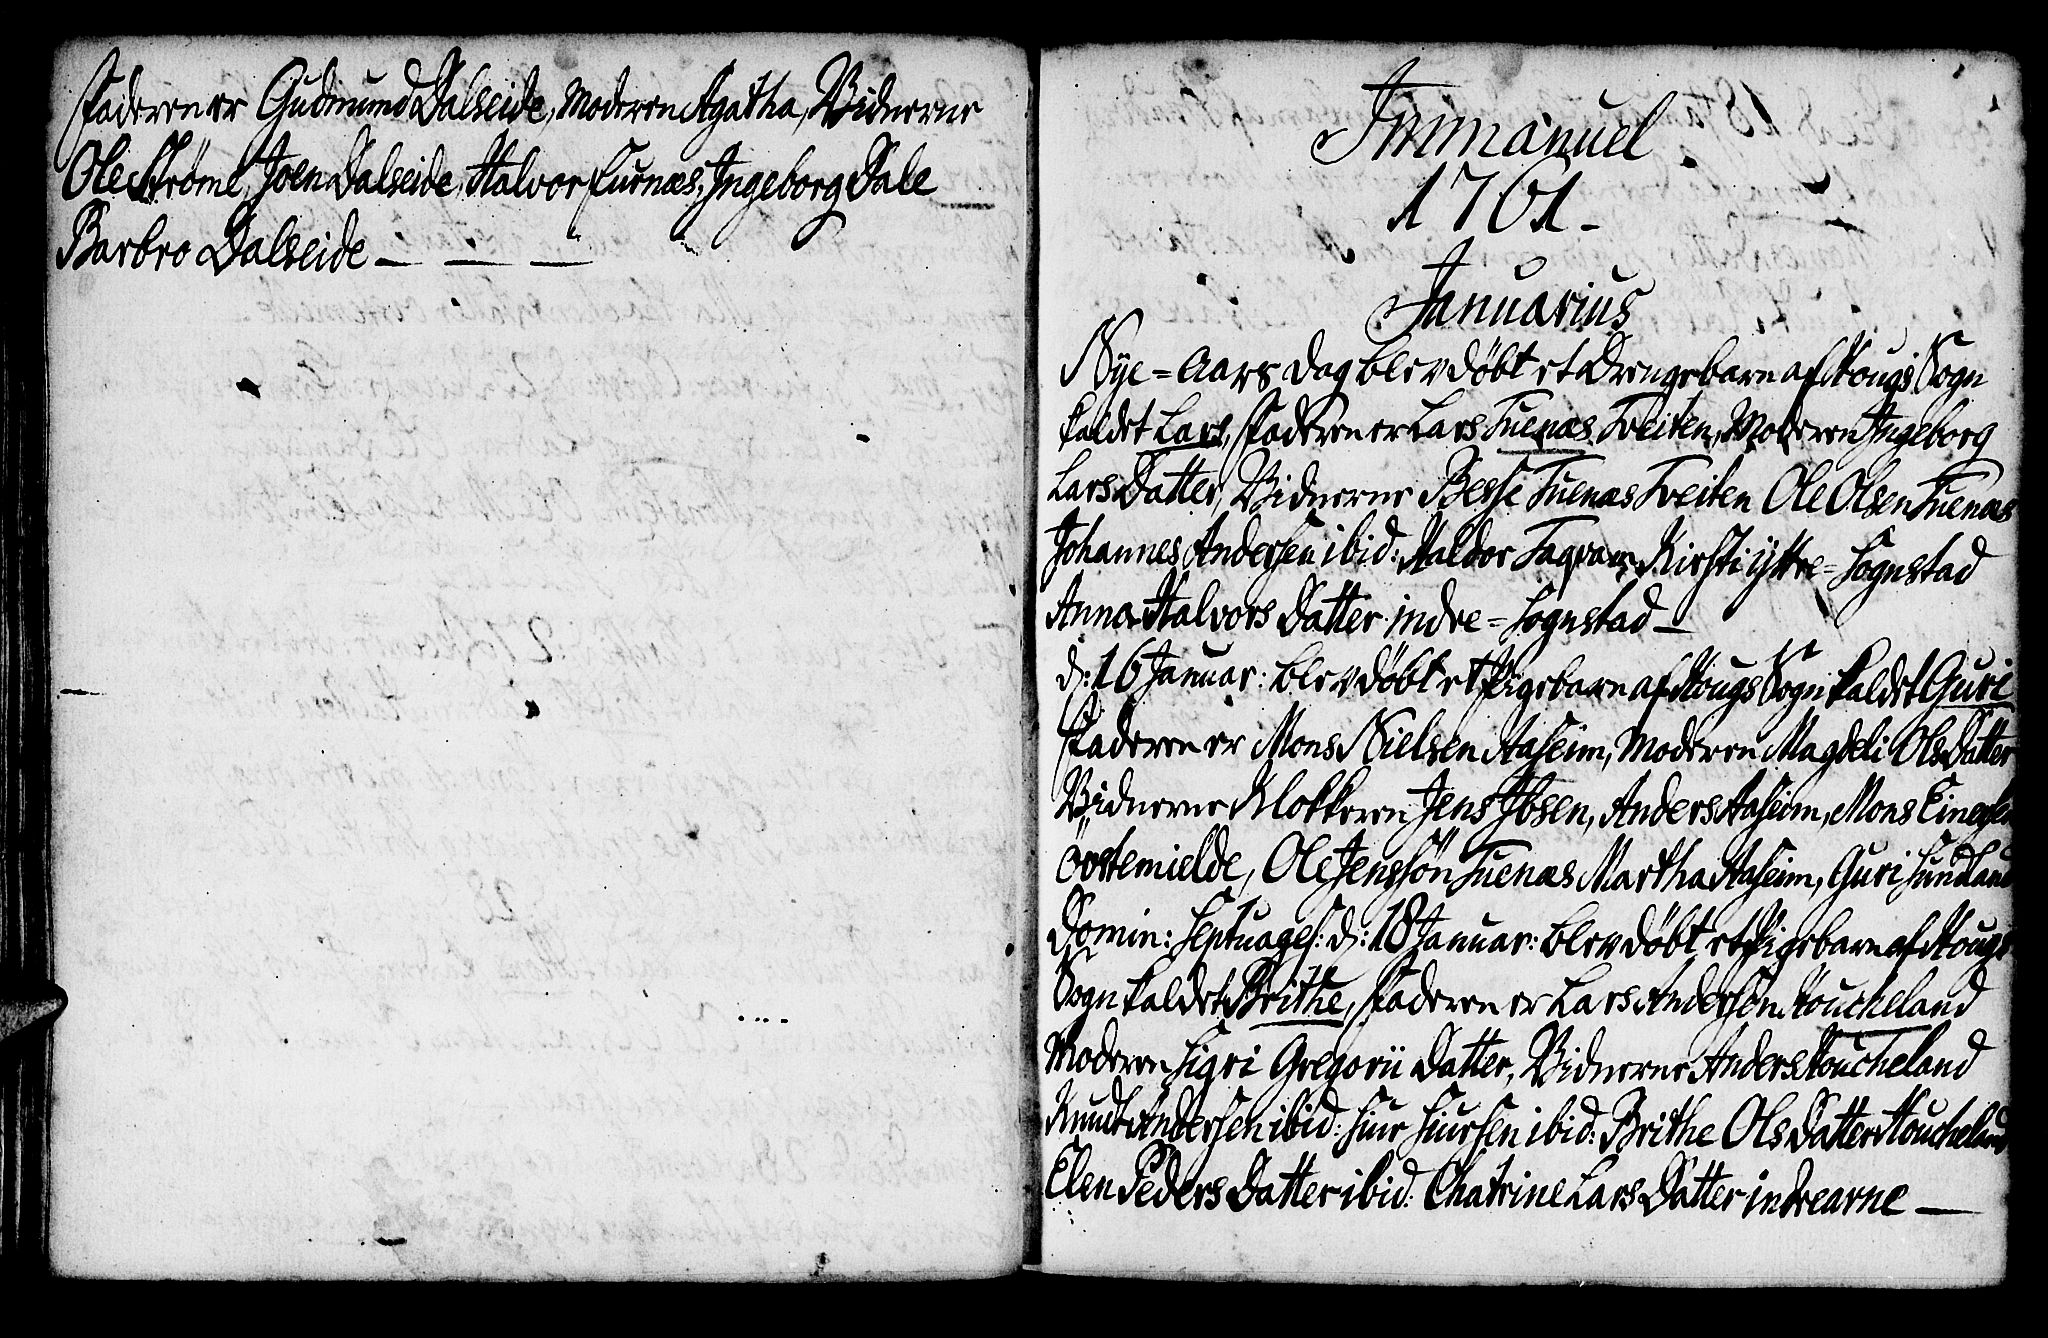 Faderen er Gudmund Dalseide, Moderen Agatha, Vidnerne
Ole Strøme, Joen Dalseide, Halvor Furnæs, Ingeborg Dale
Barbro Dalseide — — —
Immanuel
1761 –
Januarius
Nye = Aars Dag blev døbt et Drengebarn af Hougs Sogn
kaldet Lars, Faderen er Lars Tuenæs Tveiten, Moderen Ingeborg
Lars Datter, Vidnerne Besse Tuenæs Tveiten Ole Olsen Tuenæs
Johannes Andersen ibid: Haldor Fagvam, Kirsti ÿttre = Sognstad
Anna Halvors Datter indre = Sognstad —
d: 16 Januar: blev døbt et Pigebarn af Hougs Sogn kaldet Guri
Faderen er Mons Nielsen Aaseim, Moderen Magdeli Ols Datter
Vidnerne Klokkeren Jens Ibsen, Anders Aaseim, Mons
Øvstemielde, Ole Jenssøn Tuenæs Martha Aaseim, Guri Sundland
Domin: Septuages: d: 18 Januar: blev døbt et Pigebarn af Hougs
Sogn kaldet Brithe, Faderen er Lars Andersøn Houcheland
Moderen Sigri Gregorii Datter, Vidnerne Anders Houcheland
Knudt Andersen ibid: Siur Siursen ibid: Brithe Ols Datter Houcheland
Elen Peders Datter ibid: Chatrine Lars Datter indrearne —